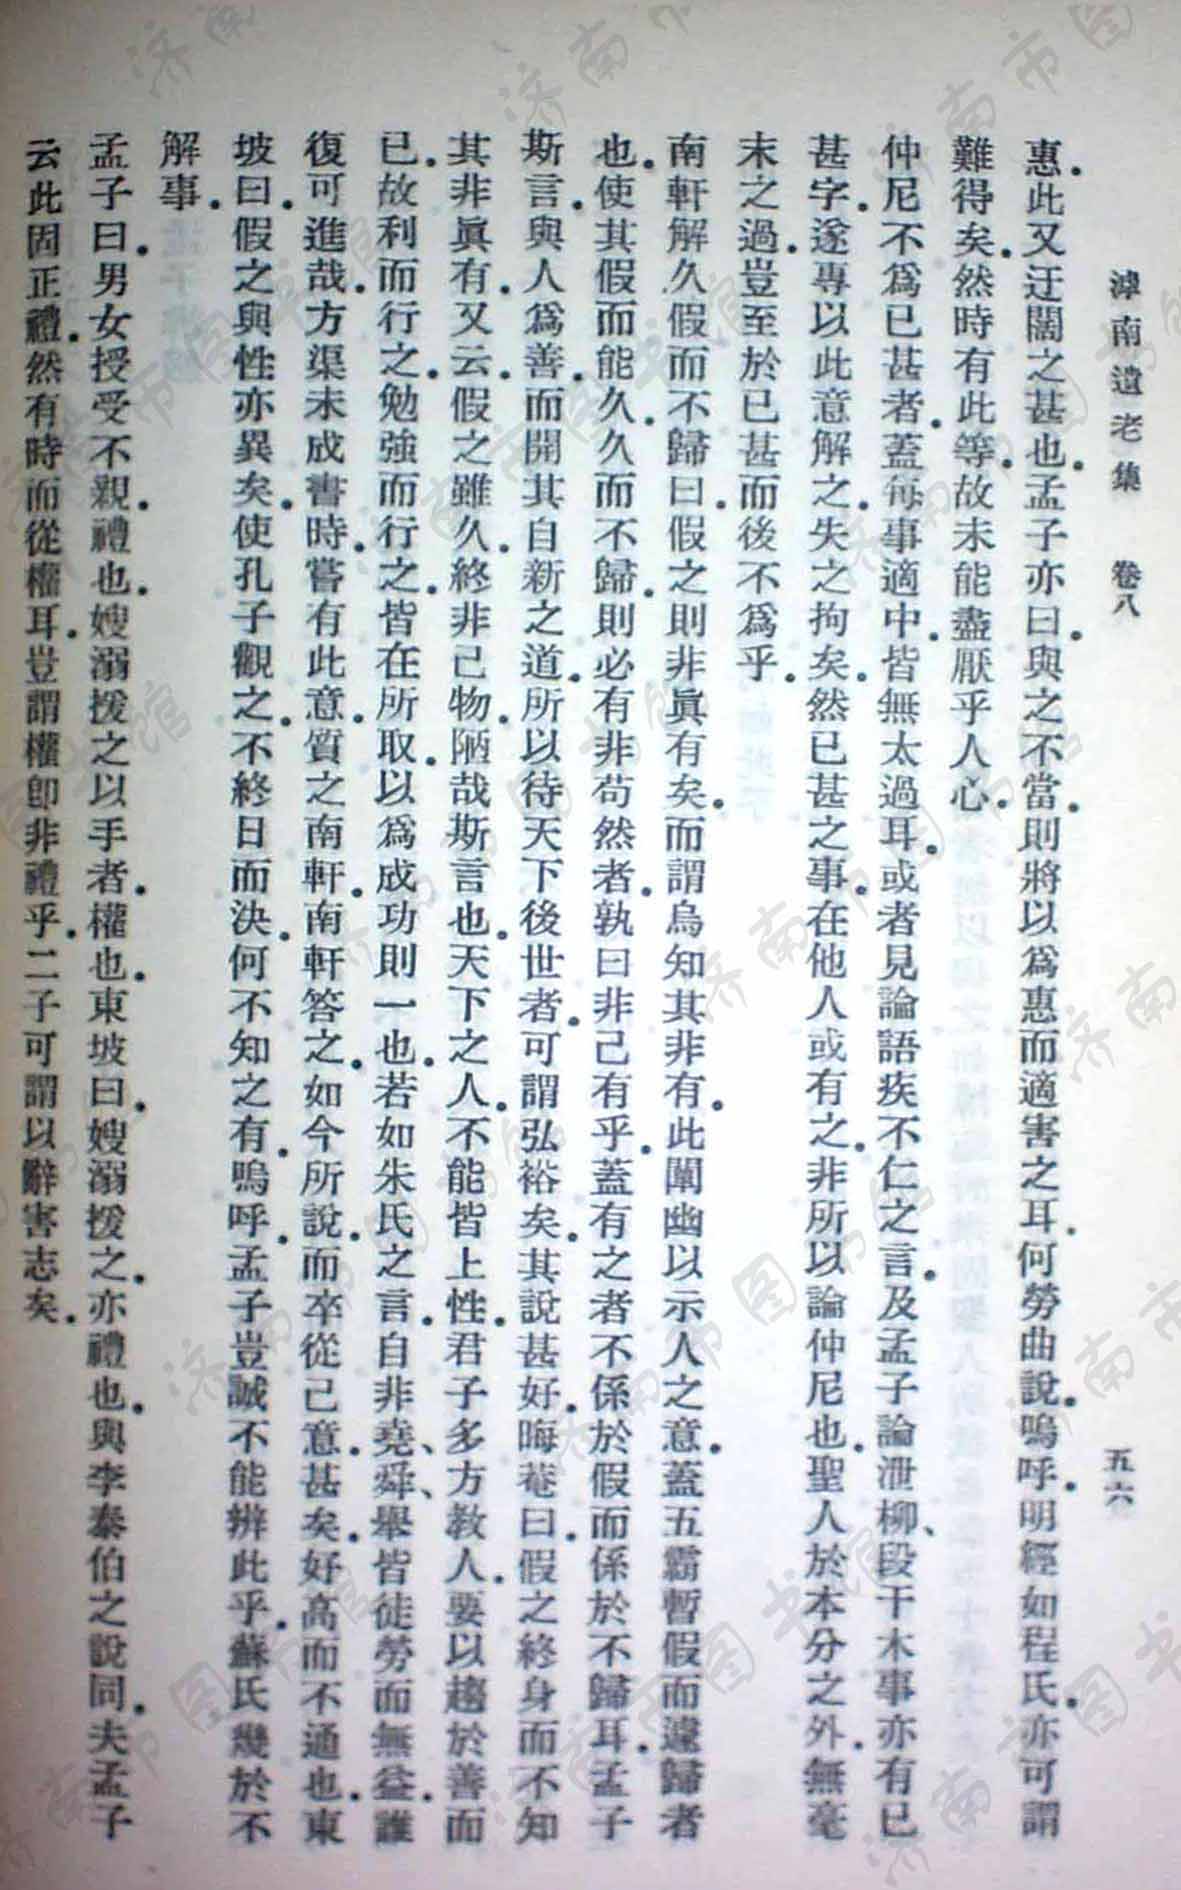 滹南遺老集　卷八　五六
惠。此又迂闊之甚也。孟子亦曰。與之不當。則將以爲惠而適害之耳。何勞曲說。嗚呼。明經如程氏。亦可謂
難得矣。然時有此等。故未能盡厭乎人心。
仲尼不爲已甚者。蓋每事適中。皆無太過耳。或者見論語疾不仁之言。及孟子論泄柳、段干木事亦有已
甚字。遂專以此意解之。失之拘矣。然已甚之事。在他人或有之。非所以論仲尼也。聖人於本分之外。無毫
末之過。豈至於已甚而後不爲乎。
南軒解久假而不歸曰。假之則非眞有矣。而謂烏知其非有。此闡幽以示人之意。蓋五霸暫假而遽歸者
也。使其假而能久。久而不歸。則必有非苟然者。孰曰非己有乎。蓋有之者不係於假而係於不歸耳。孟子
斯言。與人爲善。而開其自新之道。所以待天下後世者。可謂弘裕矣。其說甚好。晦菴曰。假之終身而不知
其非眞有。又云。假之雖久。終非己物。陋哉斯言也。天下之人。不能皆上性。君子多方教人。要以趨於善而
已。故利而行之。勉強而行之。皆在所取。以爲成功則一也。若如朱氏之言。自非堯、舜、舉皆徒勞而無益。誰
復可進哉。方渠未成書時。嘗有此意。質之南軒。南軒答之。如今所說。而卒從己意。甚矣。好高而不通也。東
坡曰。假之與性亦異矣。使孔子觀之。不終日而決。何不知之有。嗚呼。孟子豈誠不能辨此乎。蘇氏幾於不
解事。
孟子曰。男女授受不親。禮也。嫂溺援之以手者。權也。東坡曰。嫂溺援之。亦禮也。與李泰伯之說同。夫孟子
云此固正禮。然有時而從權耳。豈謂權卽非禮乎。二子可謂以辭害志矣。